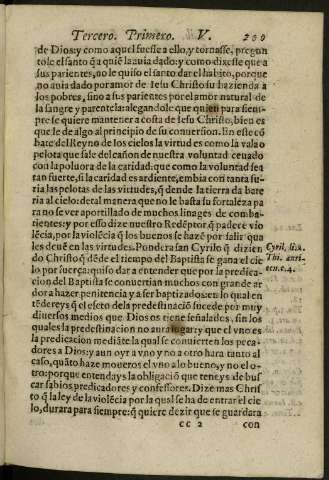 Tercero. Primero. V. 200
de Dios: y como aquel fuesse a ello, y tornasse, pregun
tole el santo q̃ a quiẽ la auia dado: y como dixesse que a
sus parientes, no le quiso el santo dar el habito, porque
no auia dado por amor de Iesu Christo su hazienda a
los pobres, sino a sus parientes por el amor natural de
la sangre y parentela: alegandole que quien para siem-
pre se quiere mantener a costa de Iesu Christo, bien es
que le de algo al principio de su conuersion. En este cõ
bate del Reyno de los cielos la virtud es como la vala o
pelota que sale del cañon de nuestra voluntad ceuado
con la poluora de la caridad: que como la voluntad sea
tan fuerte, si la caridad es ardiente, embia con tanta fu-
ria las pelotas de las virtudes, q̃ dende la tierra da bate
ria al cielo: de tal manera que no le basta su fortaleza pa
ra no se ver aportillado de muchos linages de comba-
tientes: y por esso dize nuestro Redẽptor q̃ padece vio
lẽcia, por la violẽcia q̃ los buenos se hazẽ por salir qua
les deuẽ en las virtudes. Pondera san Cyrilo q̃ dizien
do Christo q̃ dẽde el tiempo del Baptista se gana el cie
lo por fuerça: quiso dar a entender que por la predica-
cion del Baptista se conuertian muchos con grande ar
dor a hazer penitencia y a ser baptizados: en lo qual en
tẽdereys q̃ el efecto dela predestinaciõ sucede por muy
diuersos medios que Dios os tiene señalados, sin los
quales la predestinacion no aura lugar: y que el vno es
la predicacion mediãte la qual se conuierten los peca-
dores a Dios: y aun oyr a vno y no a otro hara tanto al
caso, quãto haze moueros el vno a lo bueno, y no el o-
tro: porque entendays la obligaciõ que teneys de bus
car sabios predicadores y confessores. Dize mas Chris
to q̃ la ley de la violẽcia por la qual se ha de entrar el cie
lo, durara para siempre: q̃ quiere dezir que se guardara
Cyril. li. 2.
Thi. auri-
ecn. c. 4.
CC 2 con